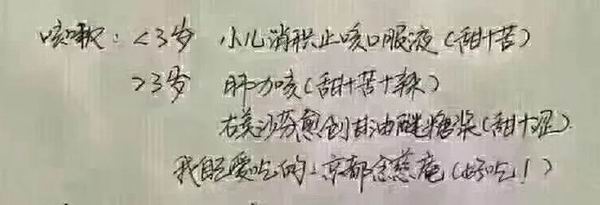 咳嗽：<3岁 小儿消积止咳口服液（甜+苦）
>3岁 肺力咳（甜+苦+辣）
右美沙芬愈创甘油醚糖浆（甜+涩）
我最爱吃的：京都念慈菴（好吃！）